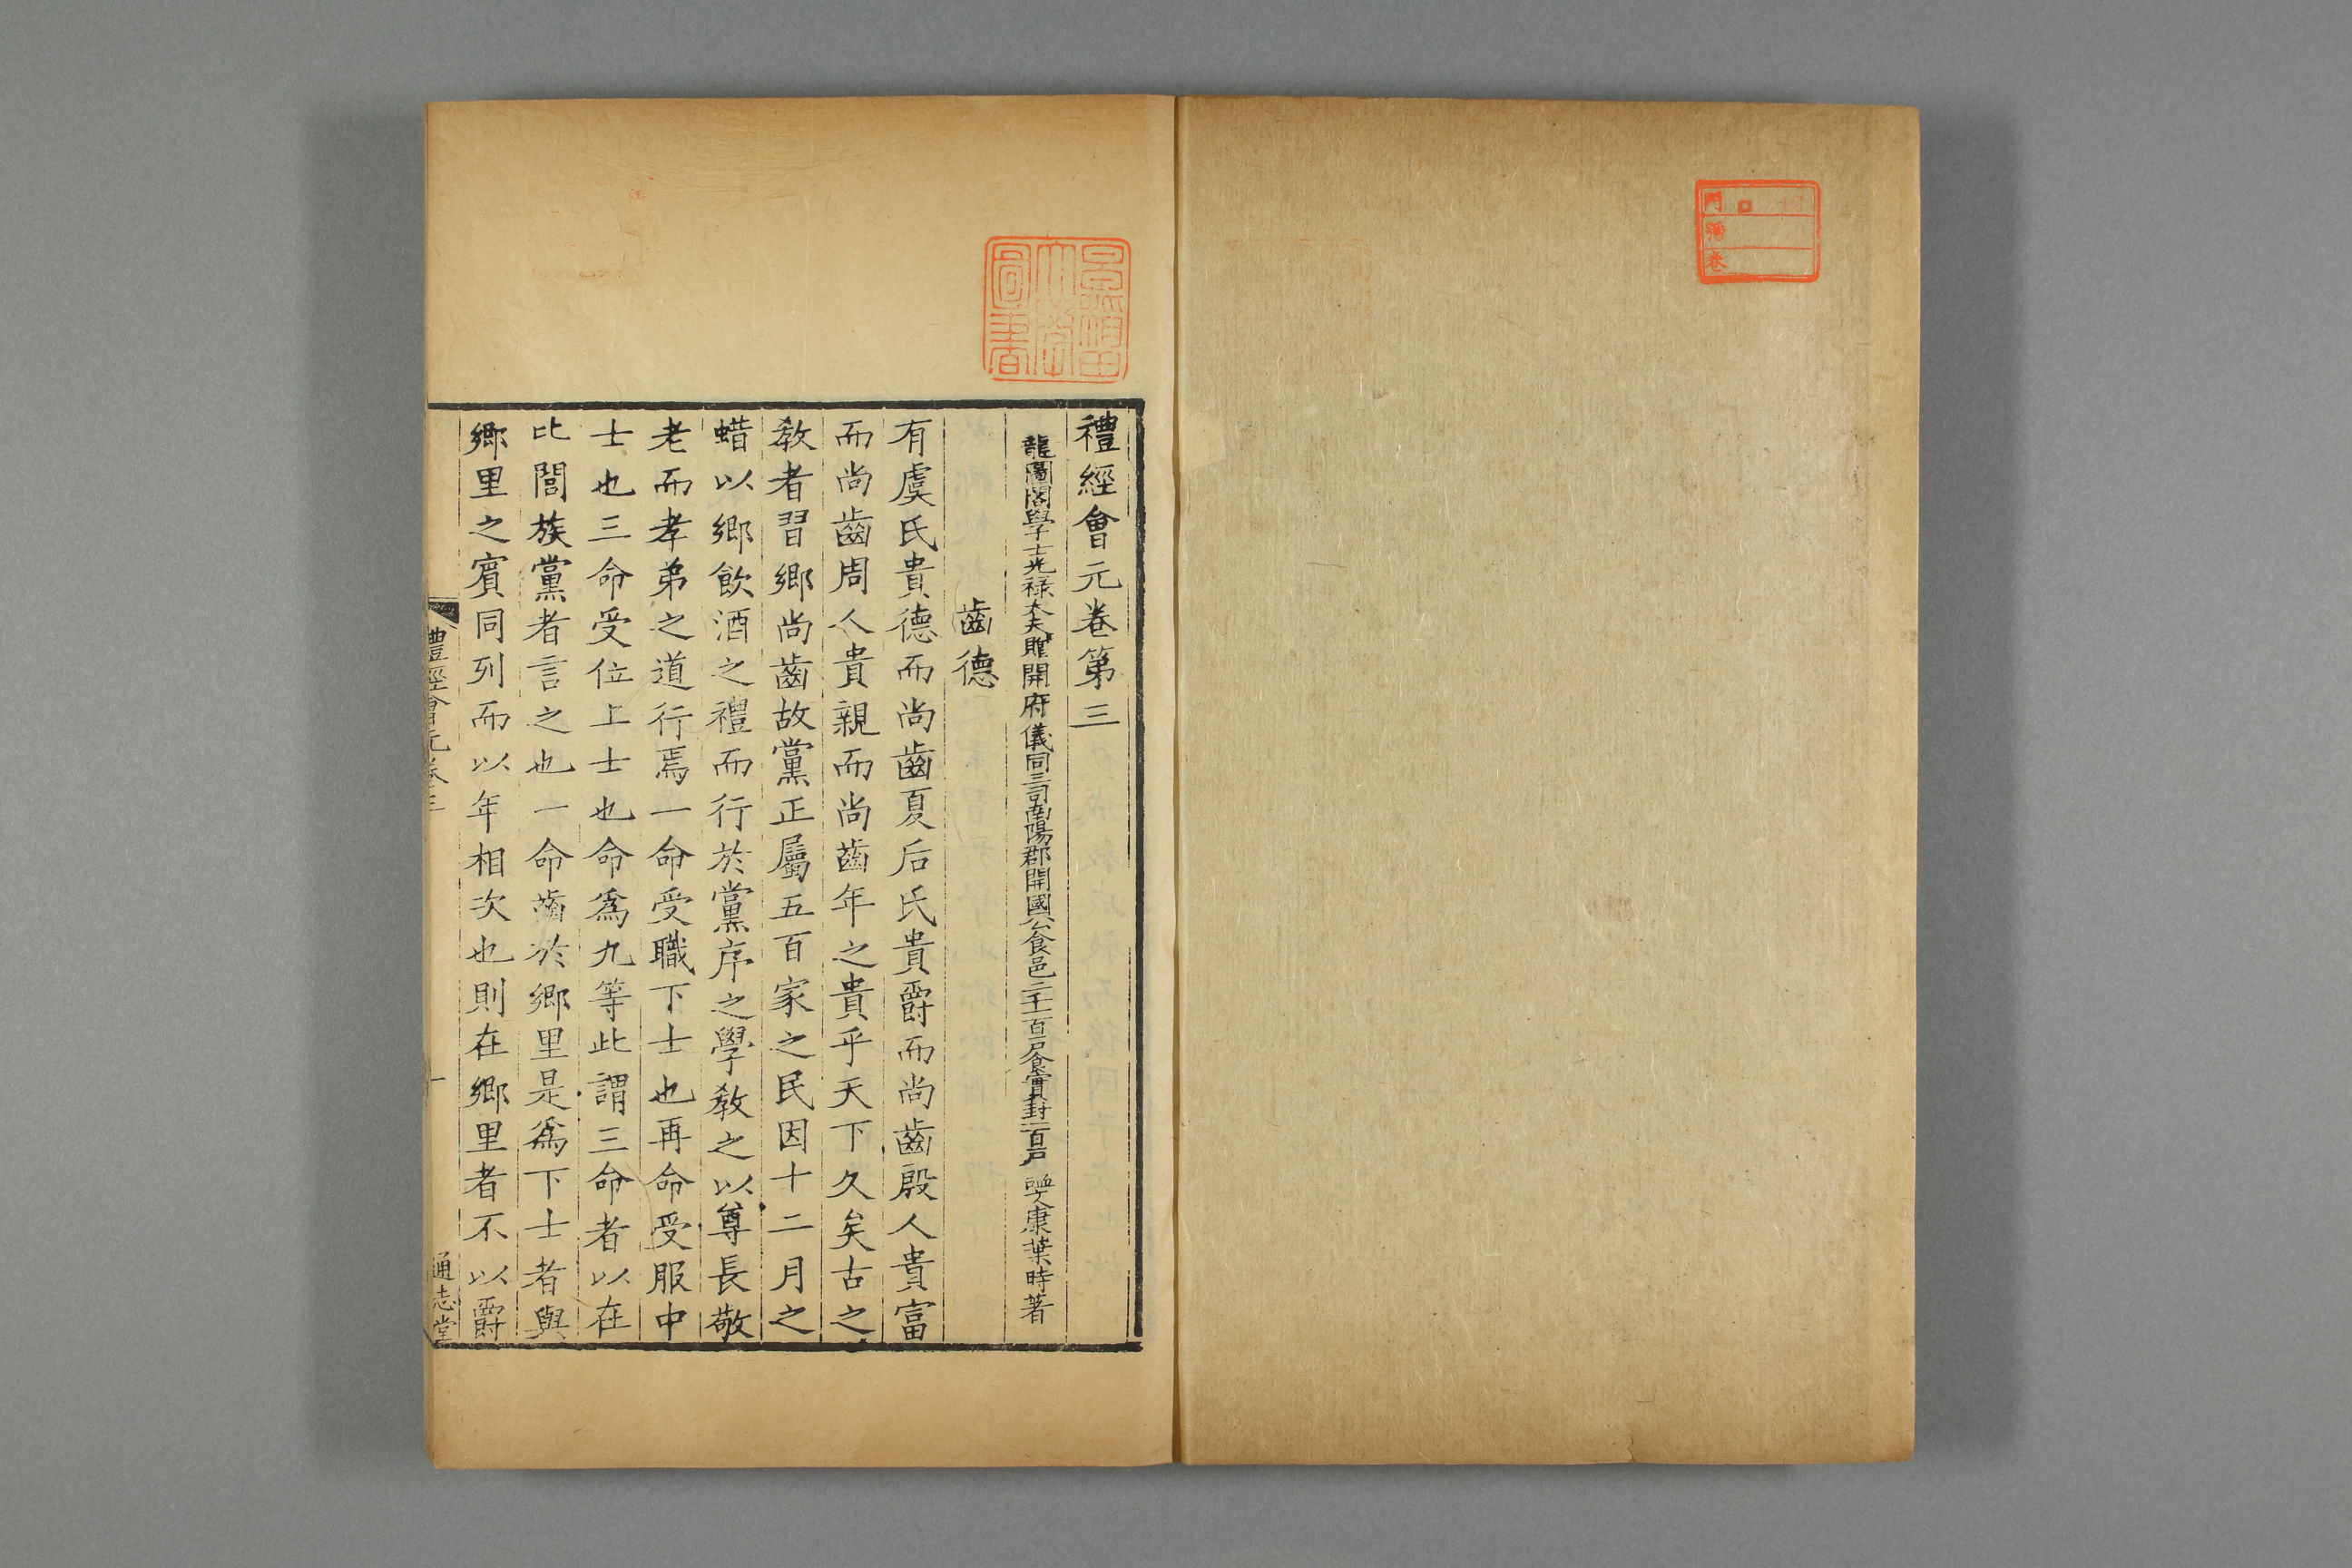 門
號
卷
禮經會元卷第三
龍圖閣學士光祿大夫贈開府儀同三司南陽郡開國公食邑二千一百戶食實封一百戶 諡文康葉時著
齒德
有虞氏貴德而尚齒夏后氏貴爵而尚齒殷人貴富
而尚齒周人貴親而尚齒年之貴乎天下久矣古之
敎者習鄉尚齒故黨正屬五百家之民因十二月之
蜡以鄉飮酒之禮而行於黨序之學敎之以尊長敬
老而孝弟之道行焉一命受職下士也再命受服中
士也三命受位上士也命爲九等此謂三命者以在
比閭族黨者言之也一命齒於鄉里是爲下士者與
鄉里之賓同列而以年相次也則在鄉里者不以爵
禮經會元卷三
一
通志堂